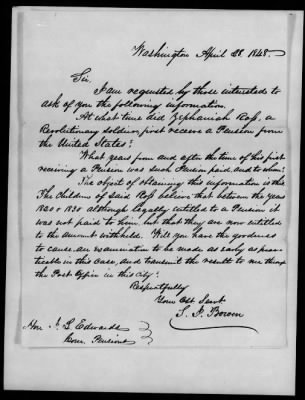 Washington April 28. 1848.
Sir,
I am requested by those interested to
ask of you the following information.
At what time did Zephaniah Ross, a
Revolutionary soldier, first receive a Pension from
the United States?
What years from and after the time of his first
receiving a Pension was such Pension paid, and to whom?
The object of obtaining this information is this
The Children of said Ross believe that between the years
1820 & 1830 although legally entitled to a Pension it
was not paid to him, but that they are now entitled
to the amount withheld. Will you have the goodness
to cause an examination to be made as early as prac-
ticable in this Case and transmit the result to me through
the Post Office in this City?
Respectfully
Your Obt Servt
S. J. Bowen
Hon J. L Edwards
Com. Pensions